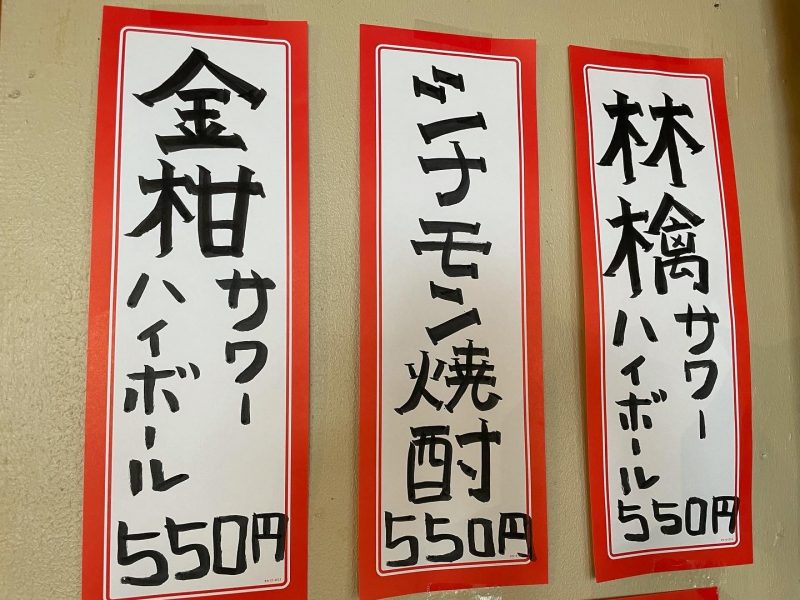 金柑
サワー
ハイボール
550円
シナモン焼酎
550円
林檎
サワー
ハイボール
550円